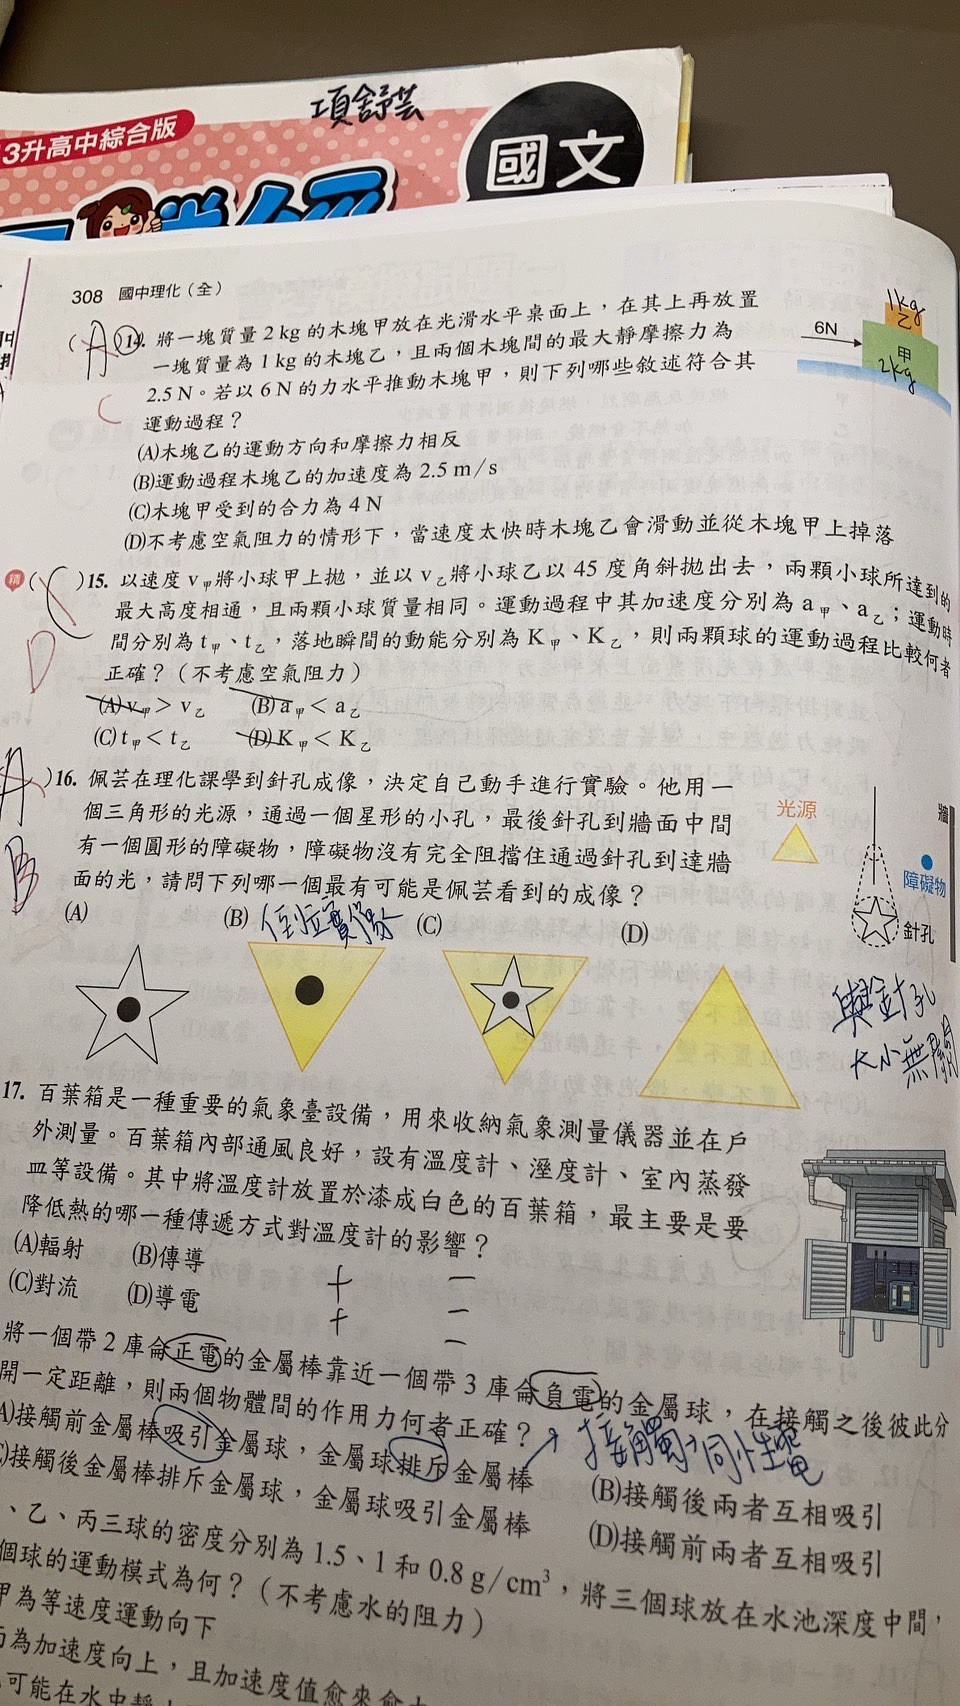 項舒芸
3升高中綜合版
國文
308 國中理化（全）
(A)14. 將一塊質量 2 kg 的木塊甲放在光滑水平桌面上，在其上再放置
一塊質量為 1 kg 的木塊乙，且兩個木塊間的最大靜摩擦力為
2.5 N。若以 6 N 的力水平推動木塊甲，則下列哪些敘述符合其
運動過程？
C
(A)木塊乙的運動方向和摩擦力相反
(B)運動過程木塊乙的加速度為 2.5 m/s
(C)木塊甲受到的合力為 4 N
(D)不考慮空氣阻力的情形下，當速度太快時木塊乙會滑動並從木塊甲上掉落
1kg
乙
6N
甲
2kg
精(C)15. 以速度 v甲將小球甲上拋，並以 v乙將小球乙以 45 度角斜拋出去，兩顆小球所達到的
最大高度相通，且兩顆小球質量相同。運動過程中其加速度分別為 a甲、a乙；運動時
間分別為 t甲、t乙，落地瞬間的動能分別為 K甲、K乙，則兩顆球的運動過程比較何者
正確？（不考慮空氣阻力）
D
(A) v甲 > v乙 (B) a甲 < a乙
(C) t甲 < t乙 (D) K甲 < K乙
A)16. 佩芸在理化課學到針孔成像，決定自己動手進行實驗。他用一
個三角形的光源，通過一個星形的小孔，最後針孔到牆面中間
有一個圓形的障礙物，障礙物沒有完全阻擋住通過針孔到達牆
面的光，請問下列哪一個最有可能是佩芸看到的成像？
B
(A) (B) 倒立實像 (C) (D)
光源
牆
障礙物
針孔
與針孔
大小無關
17. 百葉箱是一種重要的氣象臺設備，用來收納氣象測量儀器並在戶
外測量。百葉箱內部通風良好，設有溫度計、溼度計、室內蒸發
皿等設備。其中將溫度計放置於漆成白色的百葉箱，最主要是要
降低熱的哪一種傳遞方式對溫度計的影響？
(A)輻射 (B)傳導
(C)對流 (D)導電
+ −
+ −
−
將一個帶 2 庫侖正電的金屬棒靠近一個帶 3 庫侖負電的金屬球，在接觸之後彼此分
開一定距離，則兩個物體間的作用力何者正確？
→ 接觸→同性電
A)接觸前金屬棒吸引金屬球，金屬球排斥金屬棒
(B)接觸後兩者互相吸引
C)接觸後金屬棒排斥金屬球，金屬球吸引金屬棒
(D)接觸前兩者互相吸引
、乙、丙三球的密度分別為 1.5、1 和 0.8 g/cm³，將三個球放在水池深度中間，
個球的運動模式為何？（不考慮水的阻力）
甲為等速度運動向下
為加速度向上，且加速度值愈來愈大
可能在水中靜